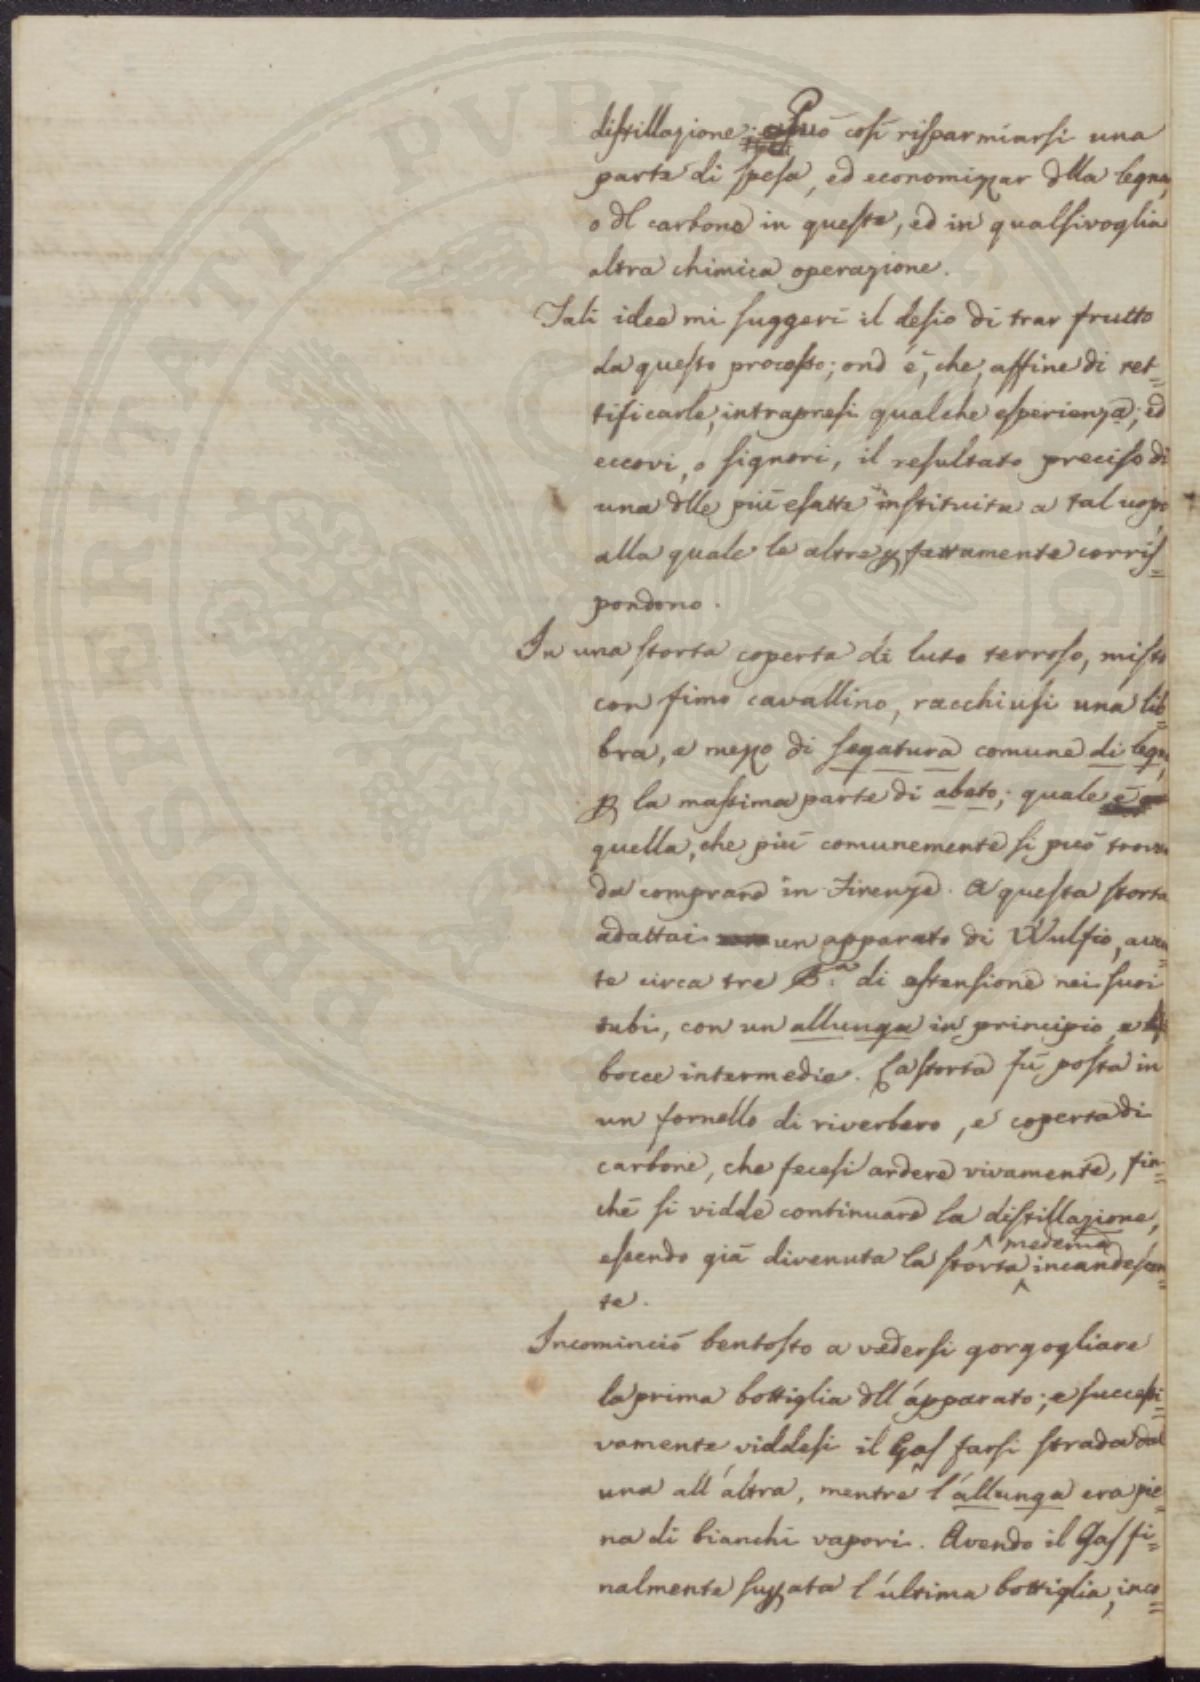 distillazione; Può così risparmiarsi una
parte di spesa, ed economizzar dlla legna,
o dl carbone in queste, ed in qualsivoglia
altra chimica operazione.
Tali idee mi suggerì il desio di trar frutto
da questo processo; ond' è, che, affine di ret=
tificarle, intrapresi qualche esperienza; ed
eccovi, o signori, il resultato preciso di
una dlle più esatte instituite a tal uopo,
alla quale le altre pfettamente corris=
pondono.
In una storta coperta di luto terroso, misto
con fimo cavallino, racchiusi una lib=
bra, e mezzo di segatura comune di legno,
p la massima parte di abeto; quale è
quella, che più comunemente si può trovar
da comprare in Firenze. A questa storta
adattai un apparato di Wulfio, aven=
te circa tre B.a di estensione nei suoi
tubi, con un allunga in principio, e
bocce intermedie. La storta fù posta in
un fornello di riverbero, e coperta di
carbone, che fecesi ardere vivamente, fin=
chè si vidde continuare la distillazione,
essendo già divenuta la storta medema incandescen=
te.
Incominciò bentosto a vedersi gorgogliare
la prima bottiglia dll' apparato; e successi=
vamente viddesi il Gas farsi strada dal
una all' altra, mentre l' allunga era pie=
na di bianchi vapori. Avendo il Gas fi=
nalmente supata l' ultima bottiglia, inco=
PROSPERITATI PVBLICAE